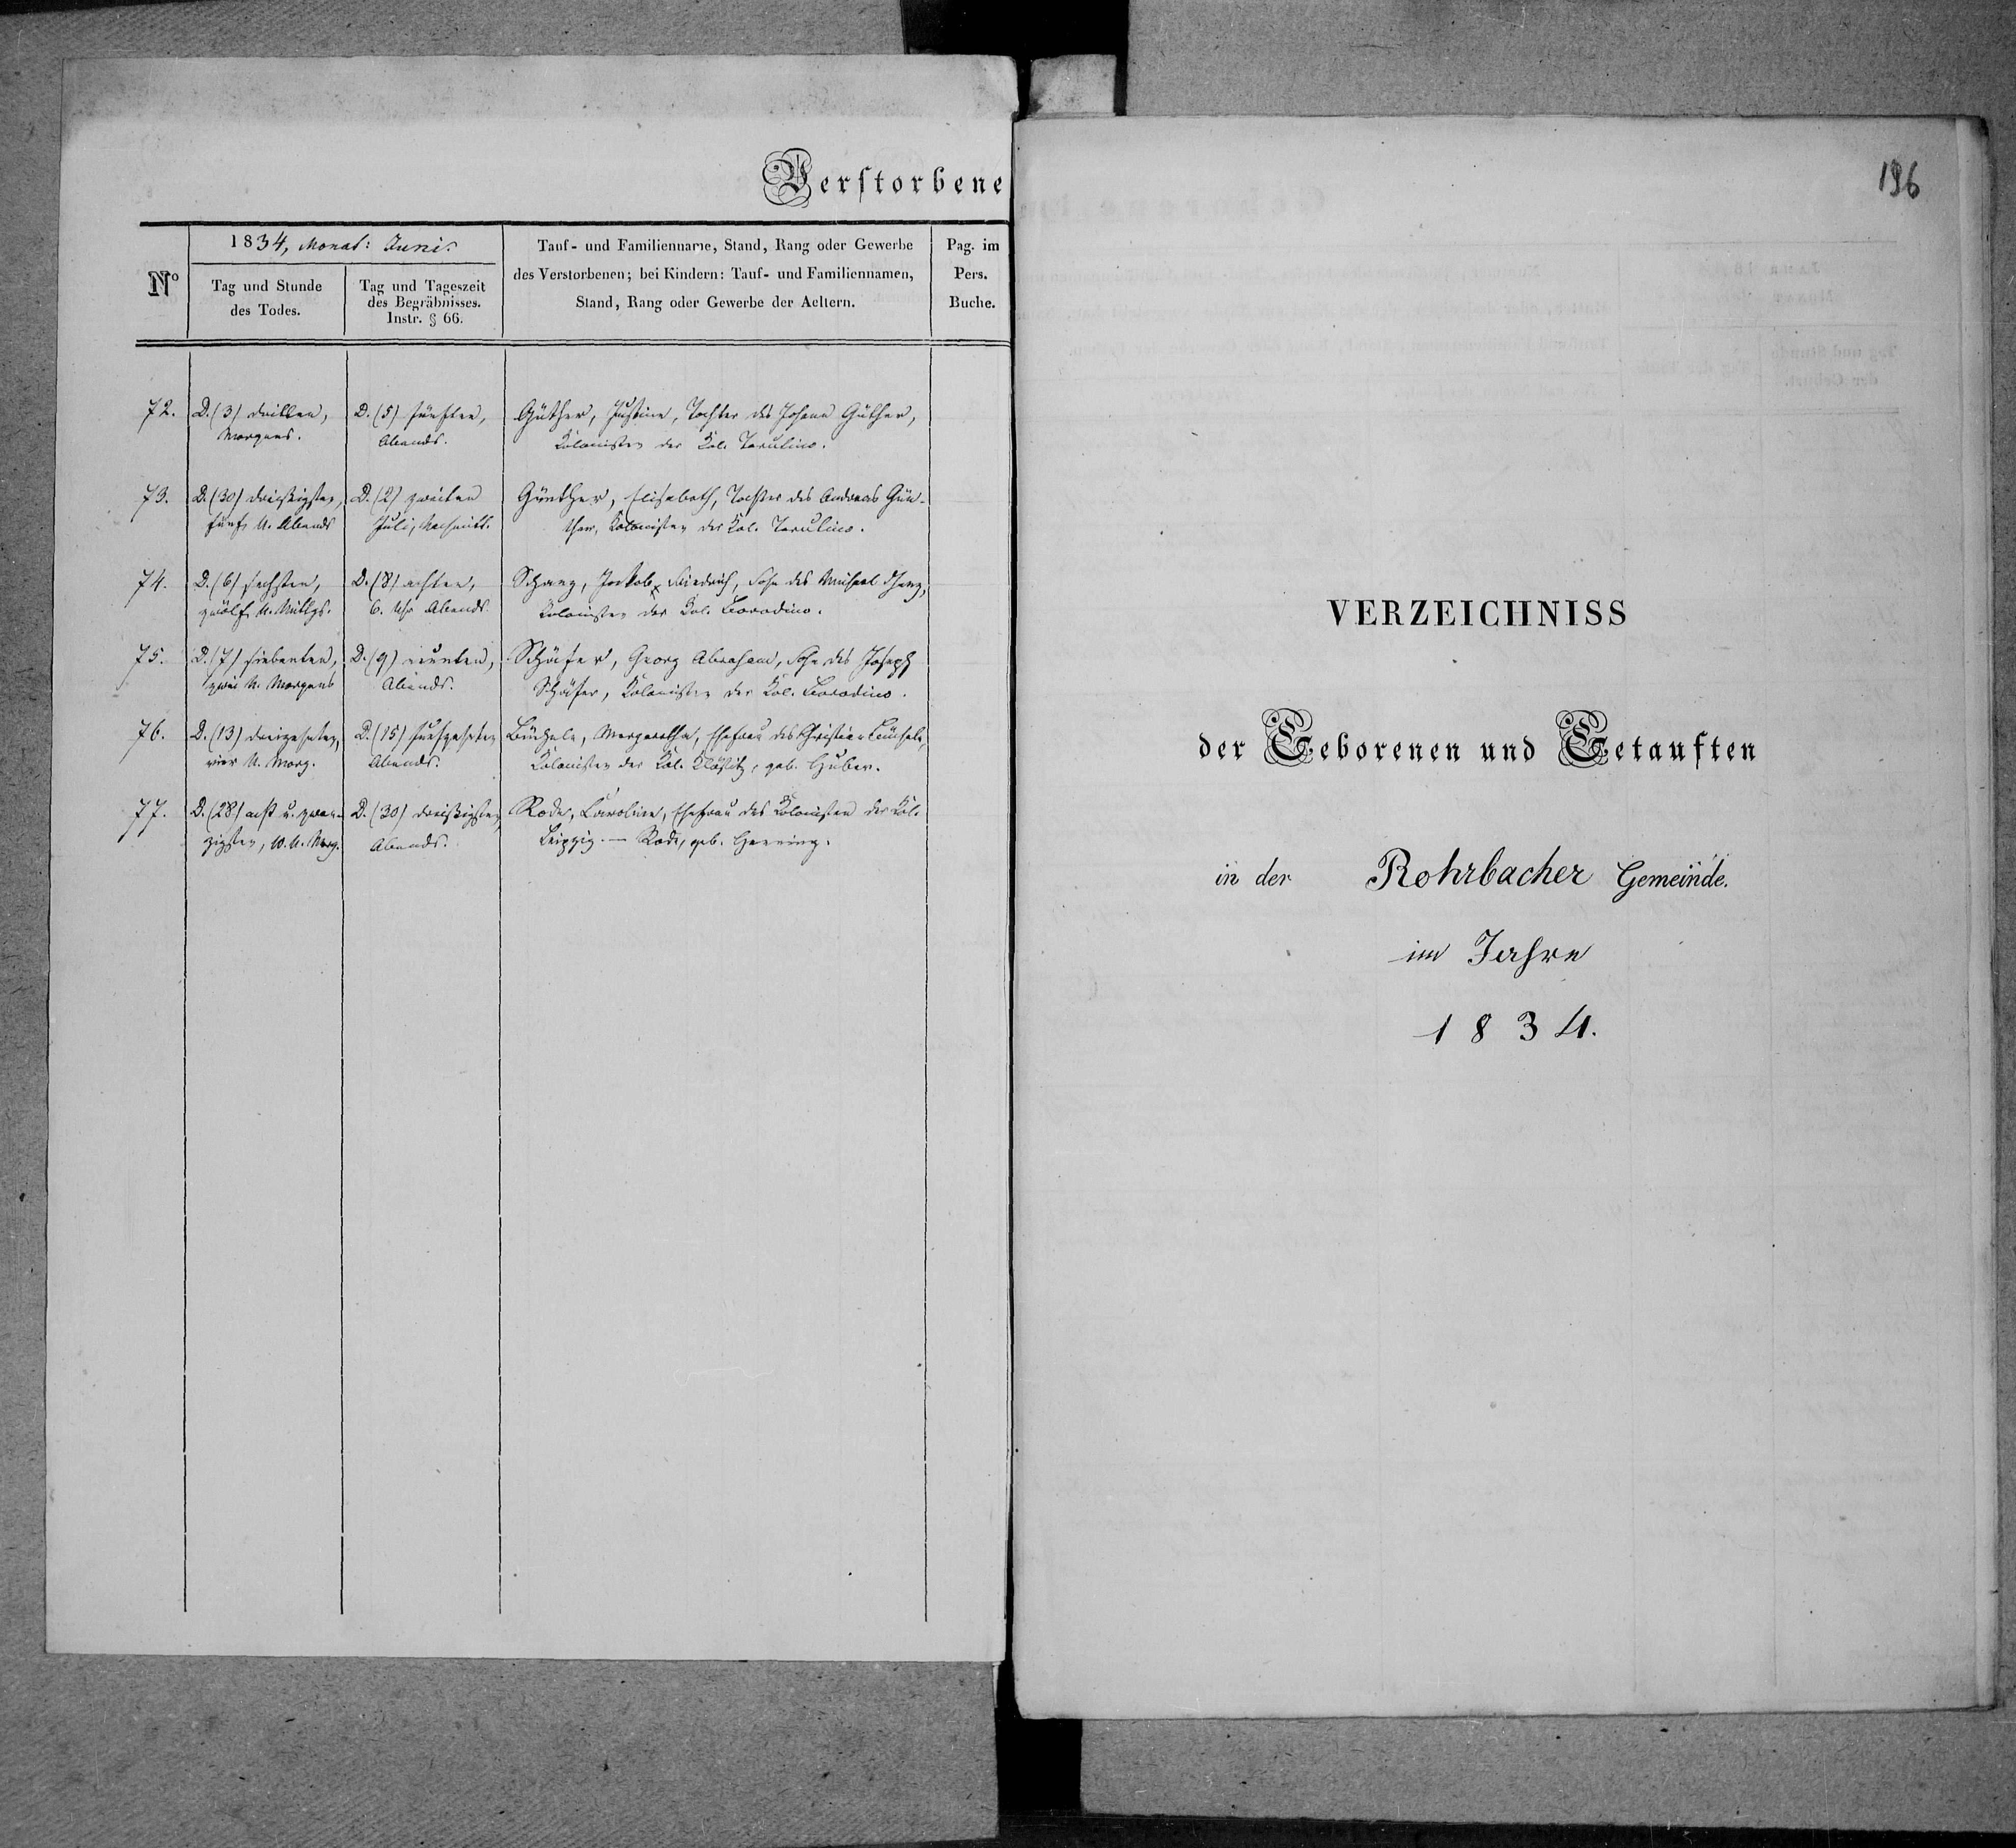 Verstorbene
1834, Monat: Juni.
Nº
Tag und Stunde
des Todes.
Tag und Tageszeit
des Begräbnisses.
Instr. § 66.
Tauf- und Familienname, Stand, Rang oder Gewerbe
des Verstorbenen; bei Kindern: Tauf- und Familiennamen,
Stand, Rang oder Gewerbe der Aeltern.
Pag. im
Pers.
Buche.
72. D. (3) dritten, D. (5) fünften, Güther, Justine, Tochter des Johann Güther,
Morgens. Abends. Kolonisten der Kol. Tarutino.
73. D. (30) dreißigsten, D. (2) zweiten Günther, Elisabeth, Tochter des Andreas Gün-
fünf U. Abends Juli, Nachmitt. ther, Kolonisten der Kol. Tarutino.
74. D. (6) sechsten, D. (8) achten, Schanz, Jackob Friedrich, Sohn des Michael Schanz,
zwölf U. Mittgs. 6. Uhr Abends. Kolonisten der Kol. Borodino.
75. D. (7) siebenten, D. (9) neunten, Schäfer, Georg Abraham, Sohn des Joseph
zwei U. Morgens Abends. Schäfer, Kolonisten der Kol. Borodino.
76. D. (13) dreizehnten, D. (15) fünfzehnten Margaretha, Ehefrau des Christian
vier U. Morg. Abends. Kolonisten der Kol. Klöstitz, geb. Huber.
77. D. (28) acht u. zwan- D. (30) dreißigsten, Rode, Caroline, Ehefrau des Kolonisten der Kol.
zigsten, 10. U. Morg. Abends. Leipzig. — Rode, geb. Henning.
196
VERZEICHNISS
der Geborenen und Getauften
in der Rohrbacher Gemeinde.
im Jahre
1834.